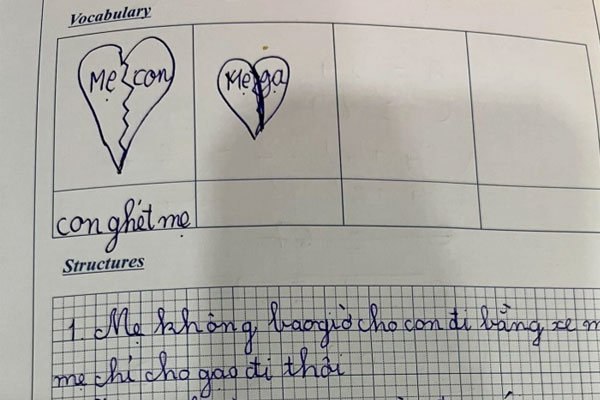 Vocabulary
Mẹ con
Mẹ gạ
con ghét mẹ
Structures
1. Mẹ không bao giờ cho con đi bằng xe
mẹ chỉ cho gạo đi thôi